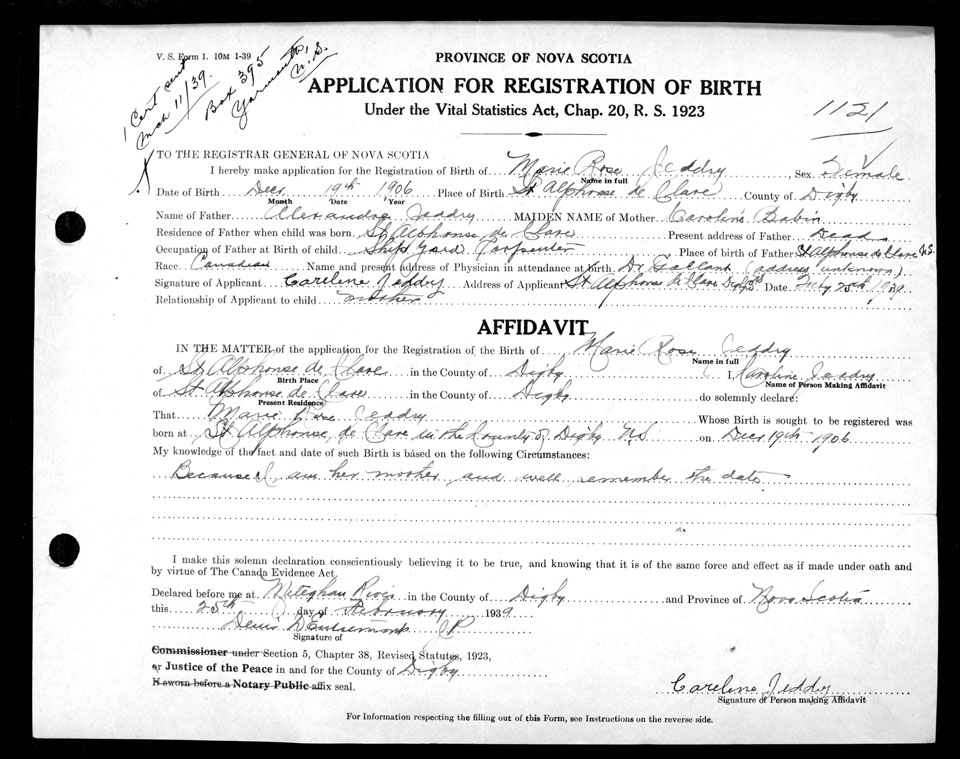 V. S. Form 1. 10M 1-39
1 Cert sent
Mch 11/39.
Box 395
Yarmouth,
N. S.
PROVINCE OF NOVA SCOTIA
APPLICATION FOR REGISTRATION OF BIRTH
Under the Vital Statistics Act, Chap. 20, R. S. 1923
1121
TO THE REGISTRAR GENERAL OF NOVA SCOTIA
I hereby make application for Registration of Birth of Marie Rose Jeddry Sex Female
Name in full
Date of Birth Decr 19th 1906 Place of Birth St Alphonse de Clare County of Digby
Month Date Year
Name of Father Alexandre Jeddry MAIDEN NAME of Mother Caroline Babin
Residence of Father when child was born St Alphonse de Clare Present address of Father Dead
Occupation of Father at Birth of child Ship Yard Carpenter Place of birth of Father St Alphonse de Clare N.S.
Race Canadian Name and present address of Physician in attendance at birth Dr Gallant (address unknown)
Signature of Applicant Careline Jeddry Address of Applicant St Alphonse de Clare Digby Date Feby 25th 1939
Relationship of Applicant to child mother
AFFIDAVIT
IN THE MATTER of the application for the Registration of the Birth of Marie Rose Jeddry
Name in full
of St Alphonse de Clare in the County of Digby I, Caroline Jeddry
Birth Place Name of Person Making Affidavit
of St Alphonse de Clare in the County of Digby do solemnly declare:
Present Residence
That Marie Rose Jeddry Whose Birth is sought to be registered was
born at St Alphonse de Clare in the County of Digby NS on Decr 19th 1906
My knowledge of the fact and date of such Birth is based on the following Circumstances:
Because I am her mother and well remember the date
I make this solemn declaration conscientiously believing it to be true, and knowing that it is of the same force and effect as if made under oath and
by virtue of The Canada Evidence Act.
Declared before me at Meteghan River in the County of Digby and Province of Nova Scotia
this 25th day of February 1939
Denis D'Entremont J.P.
Signature of
Commissioner under Section 5, Chapter 38, Revised Statutes, 1923,
or Justice of the Peace in and for the County of Digby
If sworn before a Notary Public affix seal.
Careline Jeddry
Signature of Person making Affidavit
For Information respecting the filling out of this Form, see Instructions on the reverse side.